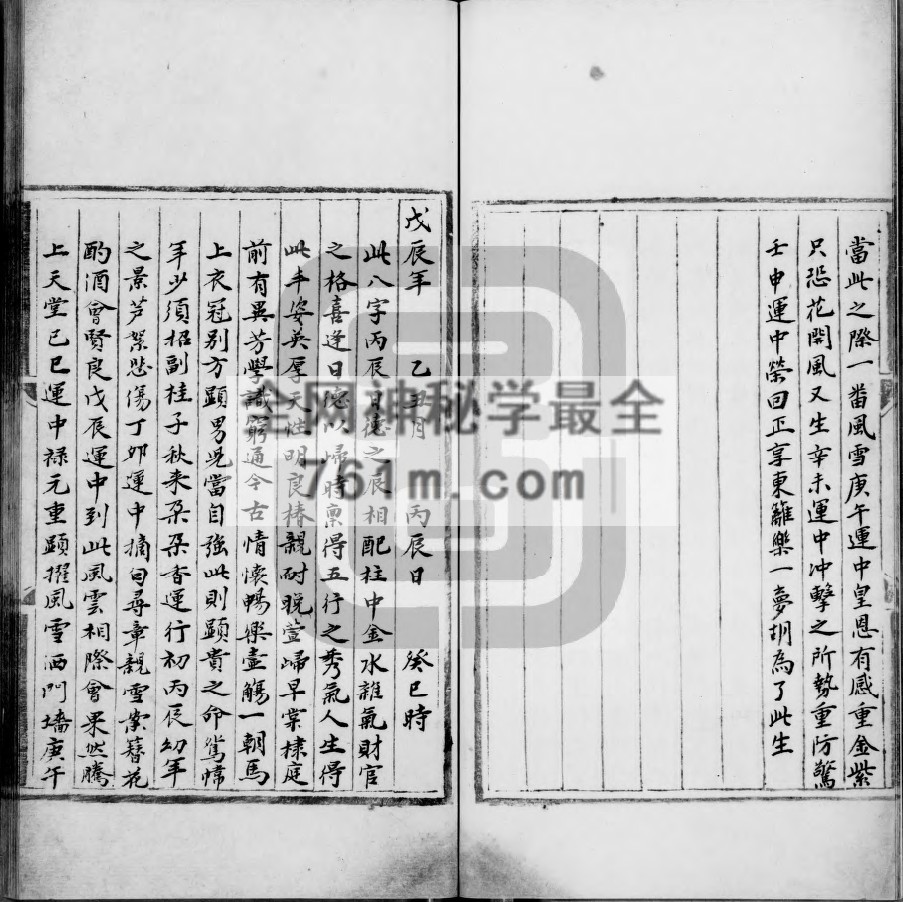 當此之際一畨風雪庚午運中皇恩有感重金紫
只恐花開風又生辛未運中冲擊之所勢重防驚
壬申運中榮回正享東籬樂一夢胡為了此生
戊辰年 乙丑月 丙辰日 癸巳時
此八字丙辰日德之辰相配柱中金水雜氣財官
之格喜逢日德以歸時稟得五行之秀氣人生得
此丰姿美厚天性明良椿親耐晚萱歸早棠棣庭
前有異芳學識窮通今古情懷暢樂壼觴一朝馬
上衣冠别方顕男児當自強此則顕貴之命鴛幃
年少須招副桂子秋来朶朶香運行初丙辰幼年
之景芦絮悲傷丁夘運中摘句尋章親雪案簪花
酌酒會賢良戊辰運中到此風雲相際會果然騰
上天堂己巳運中禄元重顕擢風雪洒門墻庚午
全网神秘学最全
761m.com